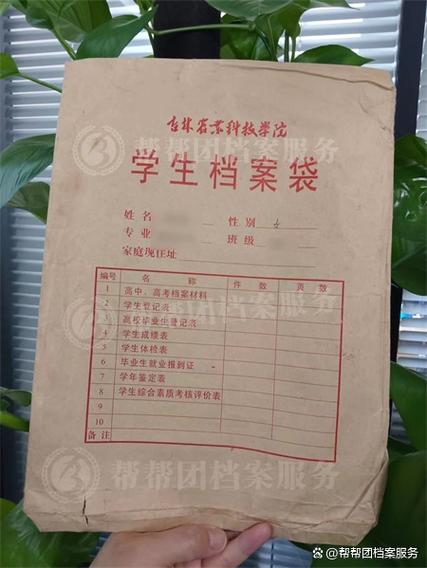 吉林农业科技学院
学生档案袋
姓名 性别 女
专业 班级
家庭现住址
编号 名称 件数 页数
1 高中、高考档案材料
2 学生登记表
3 高校毕业生登记表
4 学生成绩表
5 学生体检表
6 毕业生就业报到证
7 学年鉴定表
8 学生综合素质考核评价表
9
10
备注
帮帮团档案服务
帮帮团档案服务
帮帮团档案服务
@帮帮团档案服务